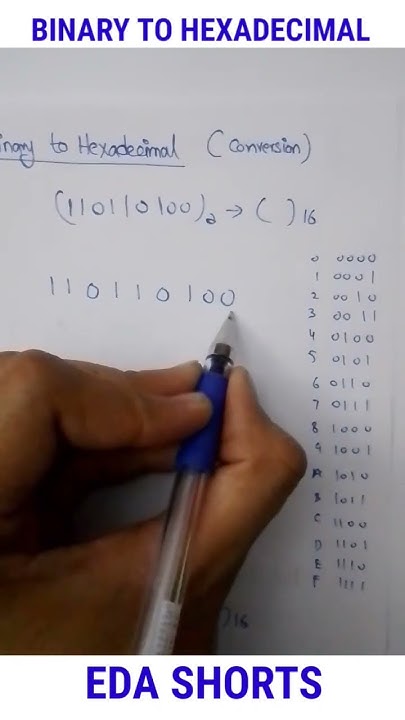 BINARY TO HEXADECIMAL
inary to Hexadecimal (Conversion)
(110110100)2 → ( )16
110110100
0 0000
1 0001
2 0010
3 0011
4 0100
5 0101
6 0110
7 0111
8 1000
9 1001
A 1010
B 1011
C 1100
D 1101
E 1110
F 1111
)16
EDA SHORTS